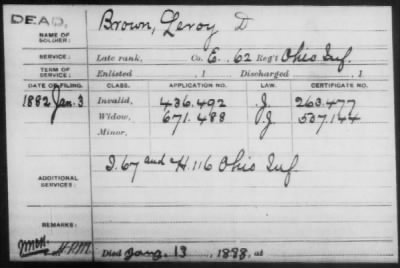 DEAD,
NAME OF SOLDIER: Brown, Leroy D
SERVICE: Late rank, Co. E. 62 Reg't Ohio Inf.
TERM OF SERVICE: Enlisted , 1 Discharged , 1
DATE OF FILING. CLASS. APPLICATION NO. LAW. CERTIFICATE NO.
1882 Jan. 3 Invalid, 436.492 J. 263.477
Widow, 671.488 J 507.144
Minor,
ADDITIONAL SERVICES: I. 67 and H. 116 Ohio Inf
REMARKS:
Died Jany. 13, 1898, at